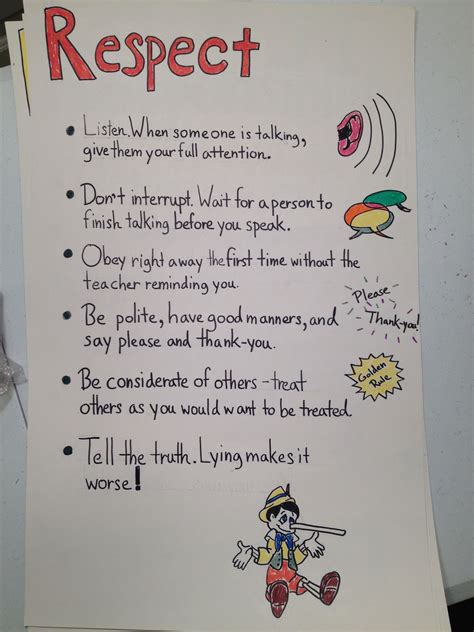 Respect
• Listen. When someone is talking,
give them your full attention.
• Don't interrupt. Wait for a person to
finish talking before you speak.
• Obey right away the first time without the
teacher reminding you.
Please
Thank-you!
• Be polite, have good manners, and
say please and thank-you.
Golden
Rule
• Be considerate of others - treat
others as you would want to be treated.
• Tell the truth. Lying makes it
worse!